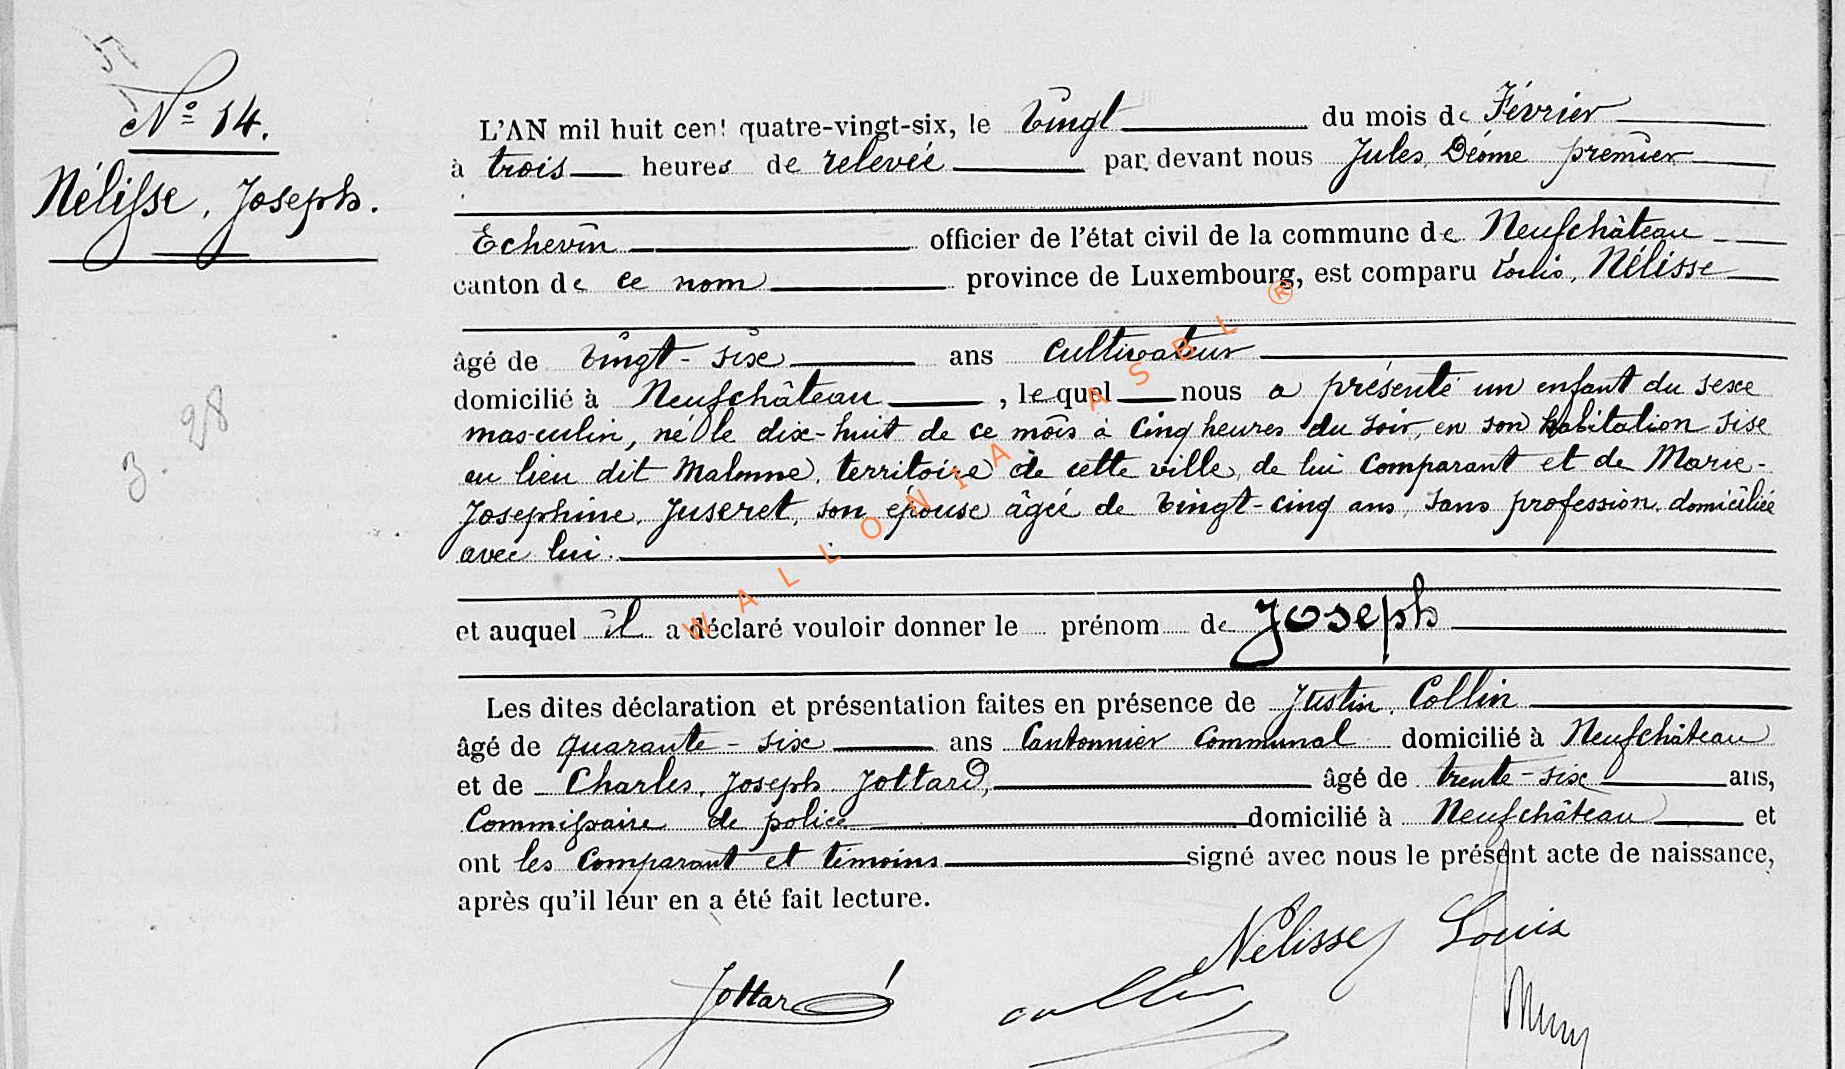 Nº 14.
Nélisse, Joseph.
3 - 28
L'AN mil huit cent quatre-vingt-six, le Vingt du mois de Février
à trois heures de relevée par devant nous Jules, Déome premier
Echevin officier de l'état civil de la commune de Neufchâteau
canton de ce nom province de Luxembourg, est comparu Louis, Nélisse
âgé de Vingt-six ans cultivateur
domicilié à Neufchâteau, lequel nous a présenté un enfant du sexe
masculin, né le dix-huit de ce mois à Cinq heures du soir, en son habitation sise
au lieu dit Malome, territoire de cette ville, de lui Comparant et de Marie-
Josephine, Juseret, son épouse âgée de Vingt-cinq ans, sans profession, domiciliée
avec lui.
et auquel il a déclaré vouloir donner le prénom de Joseph
Les dites déclaration et présentation faites en présence de Justin, Collin
âgé de quarante-six ans Cantonnier Communal domicilié à Neufchâteau
et de Charles, Joseph Jottard, âgé de trente-six ans,
Commissaire de police domicilié à Neufchâteau et
ont les Comparant et témoins signé avec nous le présent acte de naissance,
après qu'il leur en a été fait lecture.
Nélisse Louis
Jottard
Collin
WALLONIA ASBL ®